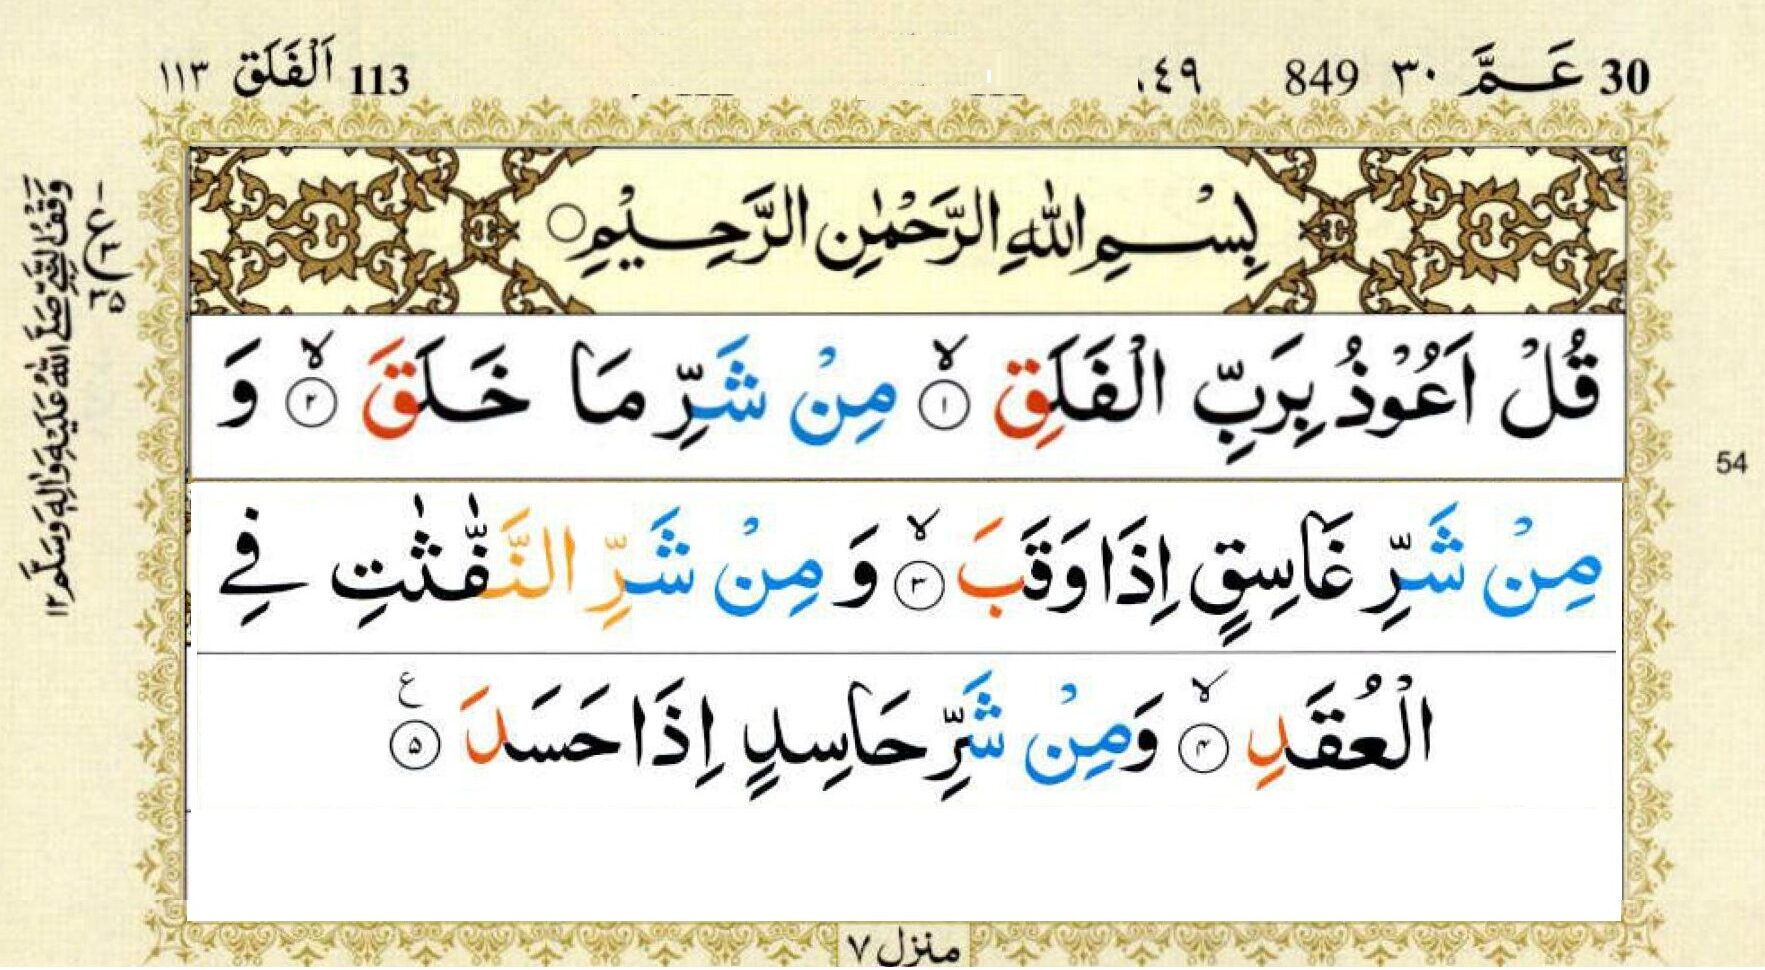 30 عَمَّ ٣٠ 849 ٠٤٩ 113 اَلْفَلَق ١١٣
بِسْمِ اللّٰهِ الرَّحْمٰنِ الرَّحِيْمِ
قُلْ اَعُوْذُ بِرَبِّ الْفَلَقِ ۙ‏﴿۱﴾ مِنْ شَرِّ مَا خَلَقَ ۙ‏﴿۲﴾ وَ
مِنْ شَرِّ غَاسِقٍ اِذَا وَقَبَ ۙ‏﴿۳﴾ وَ مِنْ شَرِّ النَّفّٰثٰتِ فِے
الْعُقَدِ ۙ‏﴿۴﴾ وَمِنْ شَرِّ حَاسِدٍ اِذَا حَسَدَ ﴿۵﴾ ع
ع ٣ ٣٥
وَقْفُ النَّبِيِّ صَلَّى اللّٰهُ عَلَيْهِ وَاٰلِهٖ وَسَلَّمَ ١٢
54
منزل ٧